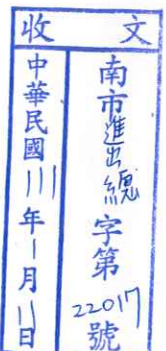 收文
南市進出總字第22017號
中華民國111年1月11日